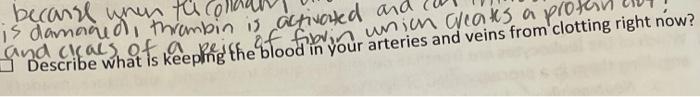 because when
is damaged, thrombin is activated and
and clears of a of fibrin which creates a protein clot
Describe what is keeping the blood in your arteries and veins from clotting right now?